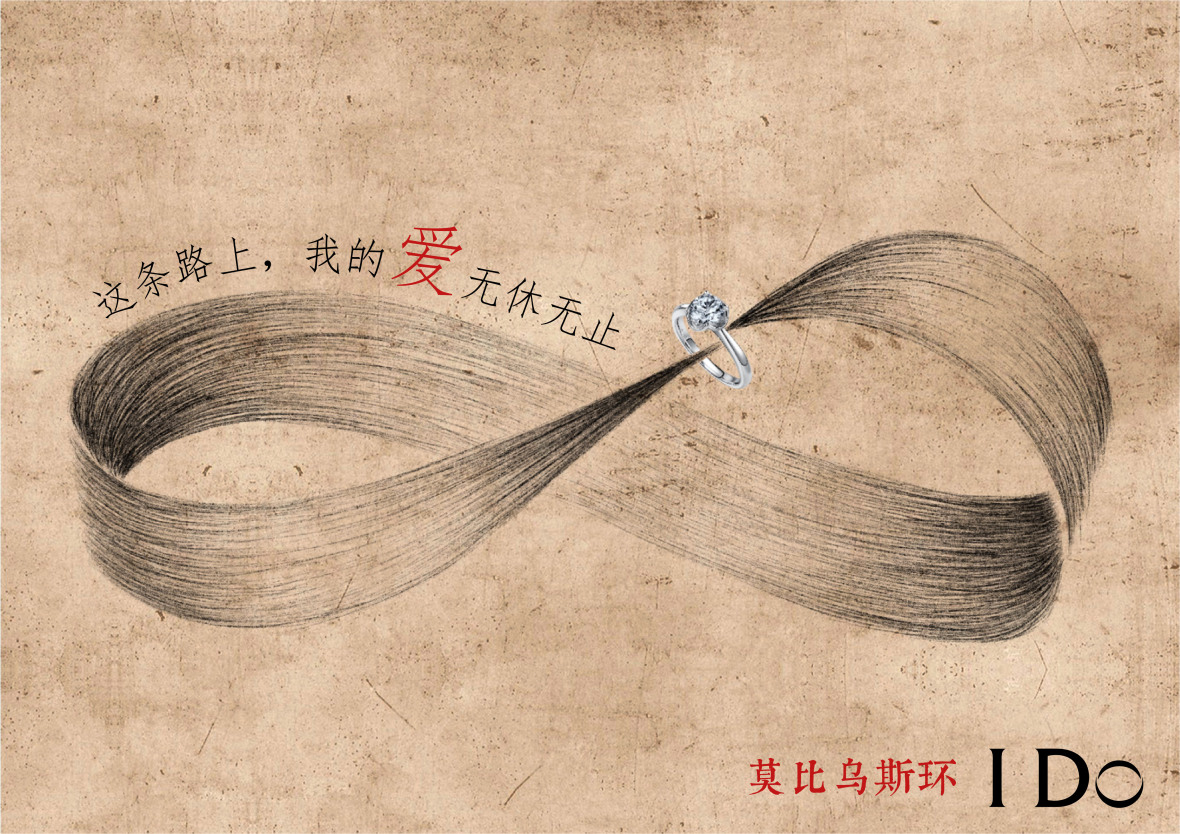 这条路上，我的爱无休无止
莫比乌斯环 I Do